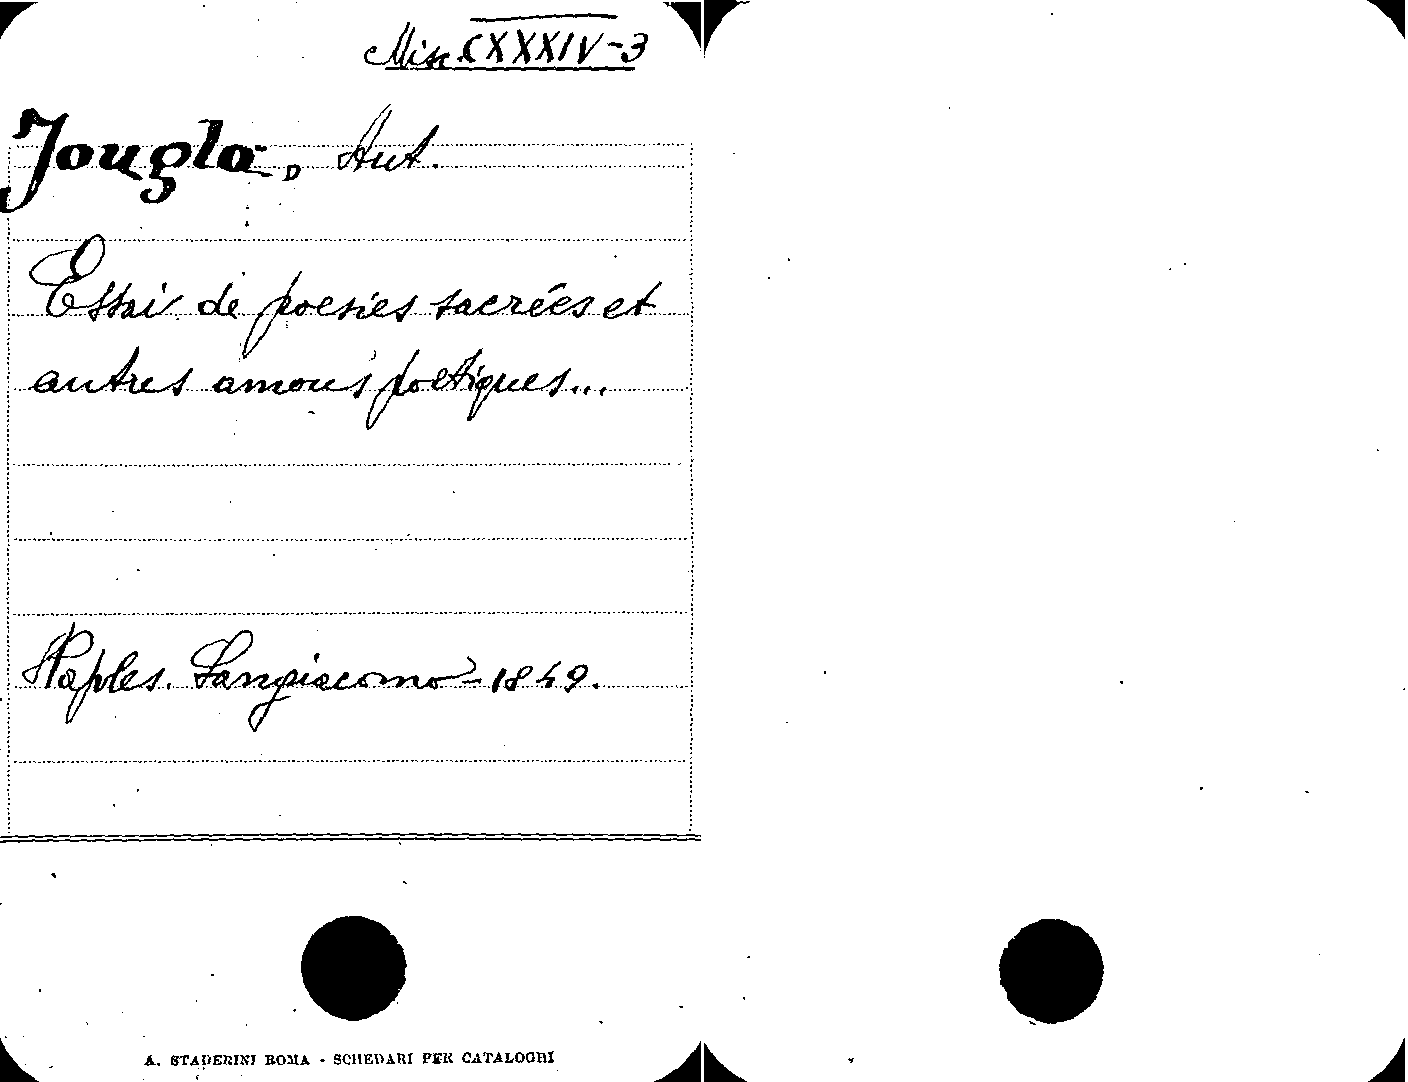 Misc. CXXXIV-3
Jougla, Ant.
Essai de poesies sacrées et
autres amours poetiques...
Naples. Sangiacomo - 1849.
A. STADERINI ROMA - SCHEDARI PER CATALOGHI